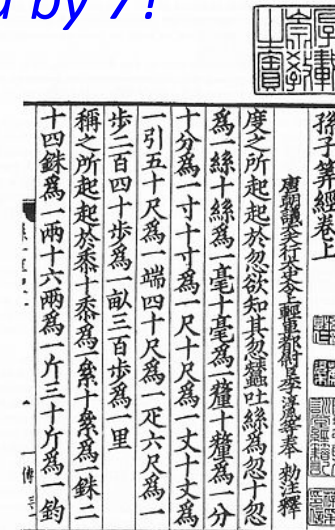 by 7!
孫子筭經卷上
唐朝議大夫行太史令上輕車都尉臣李淳風等奉 勑注釋
度之所起起於忽欲知其忽蠶吐絲爲忽十忽
爲一絲十絲爲一毫十毫爲一釐十釐爲一分
十分爲一寸十寸爲一尺十尺爲一丈十丈爲
一引五十尺爲一端四十尺爲一疋六尺爲一
步二百四十步爲一畝三百步爲一里
稱之所起起於黍十黍爲一絫十絫爲一銖二
十四銖爲一兩十六兩爲一斤三十斤爲一鈞